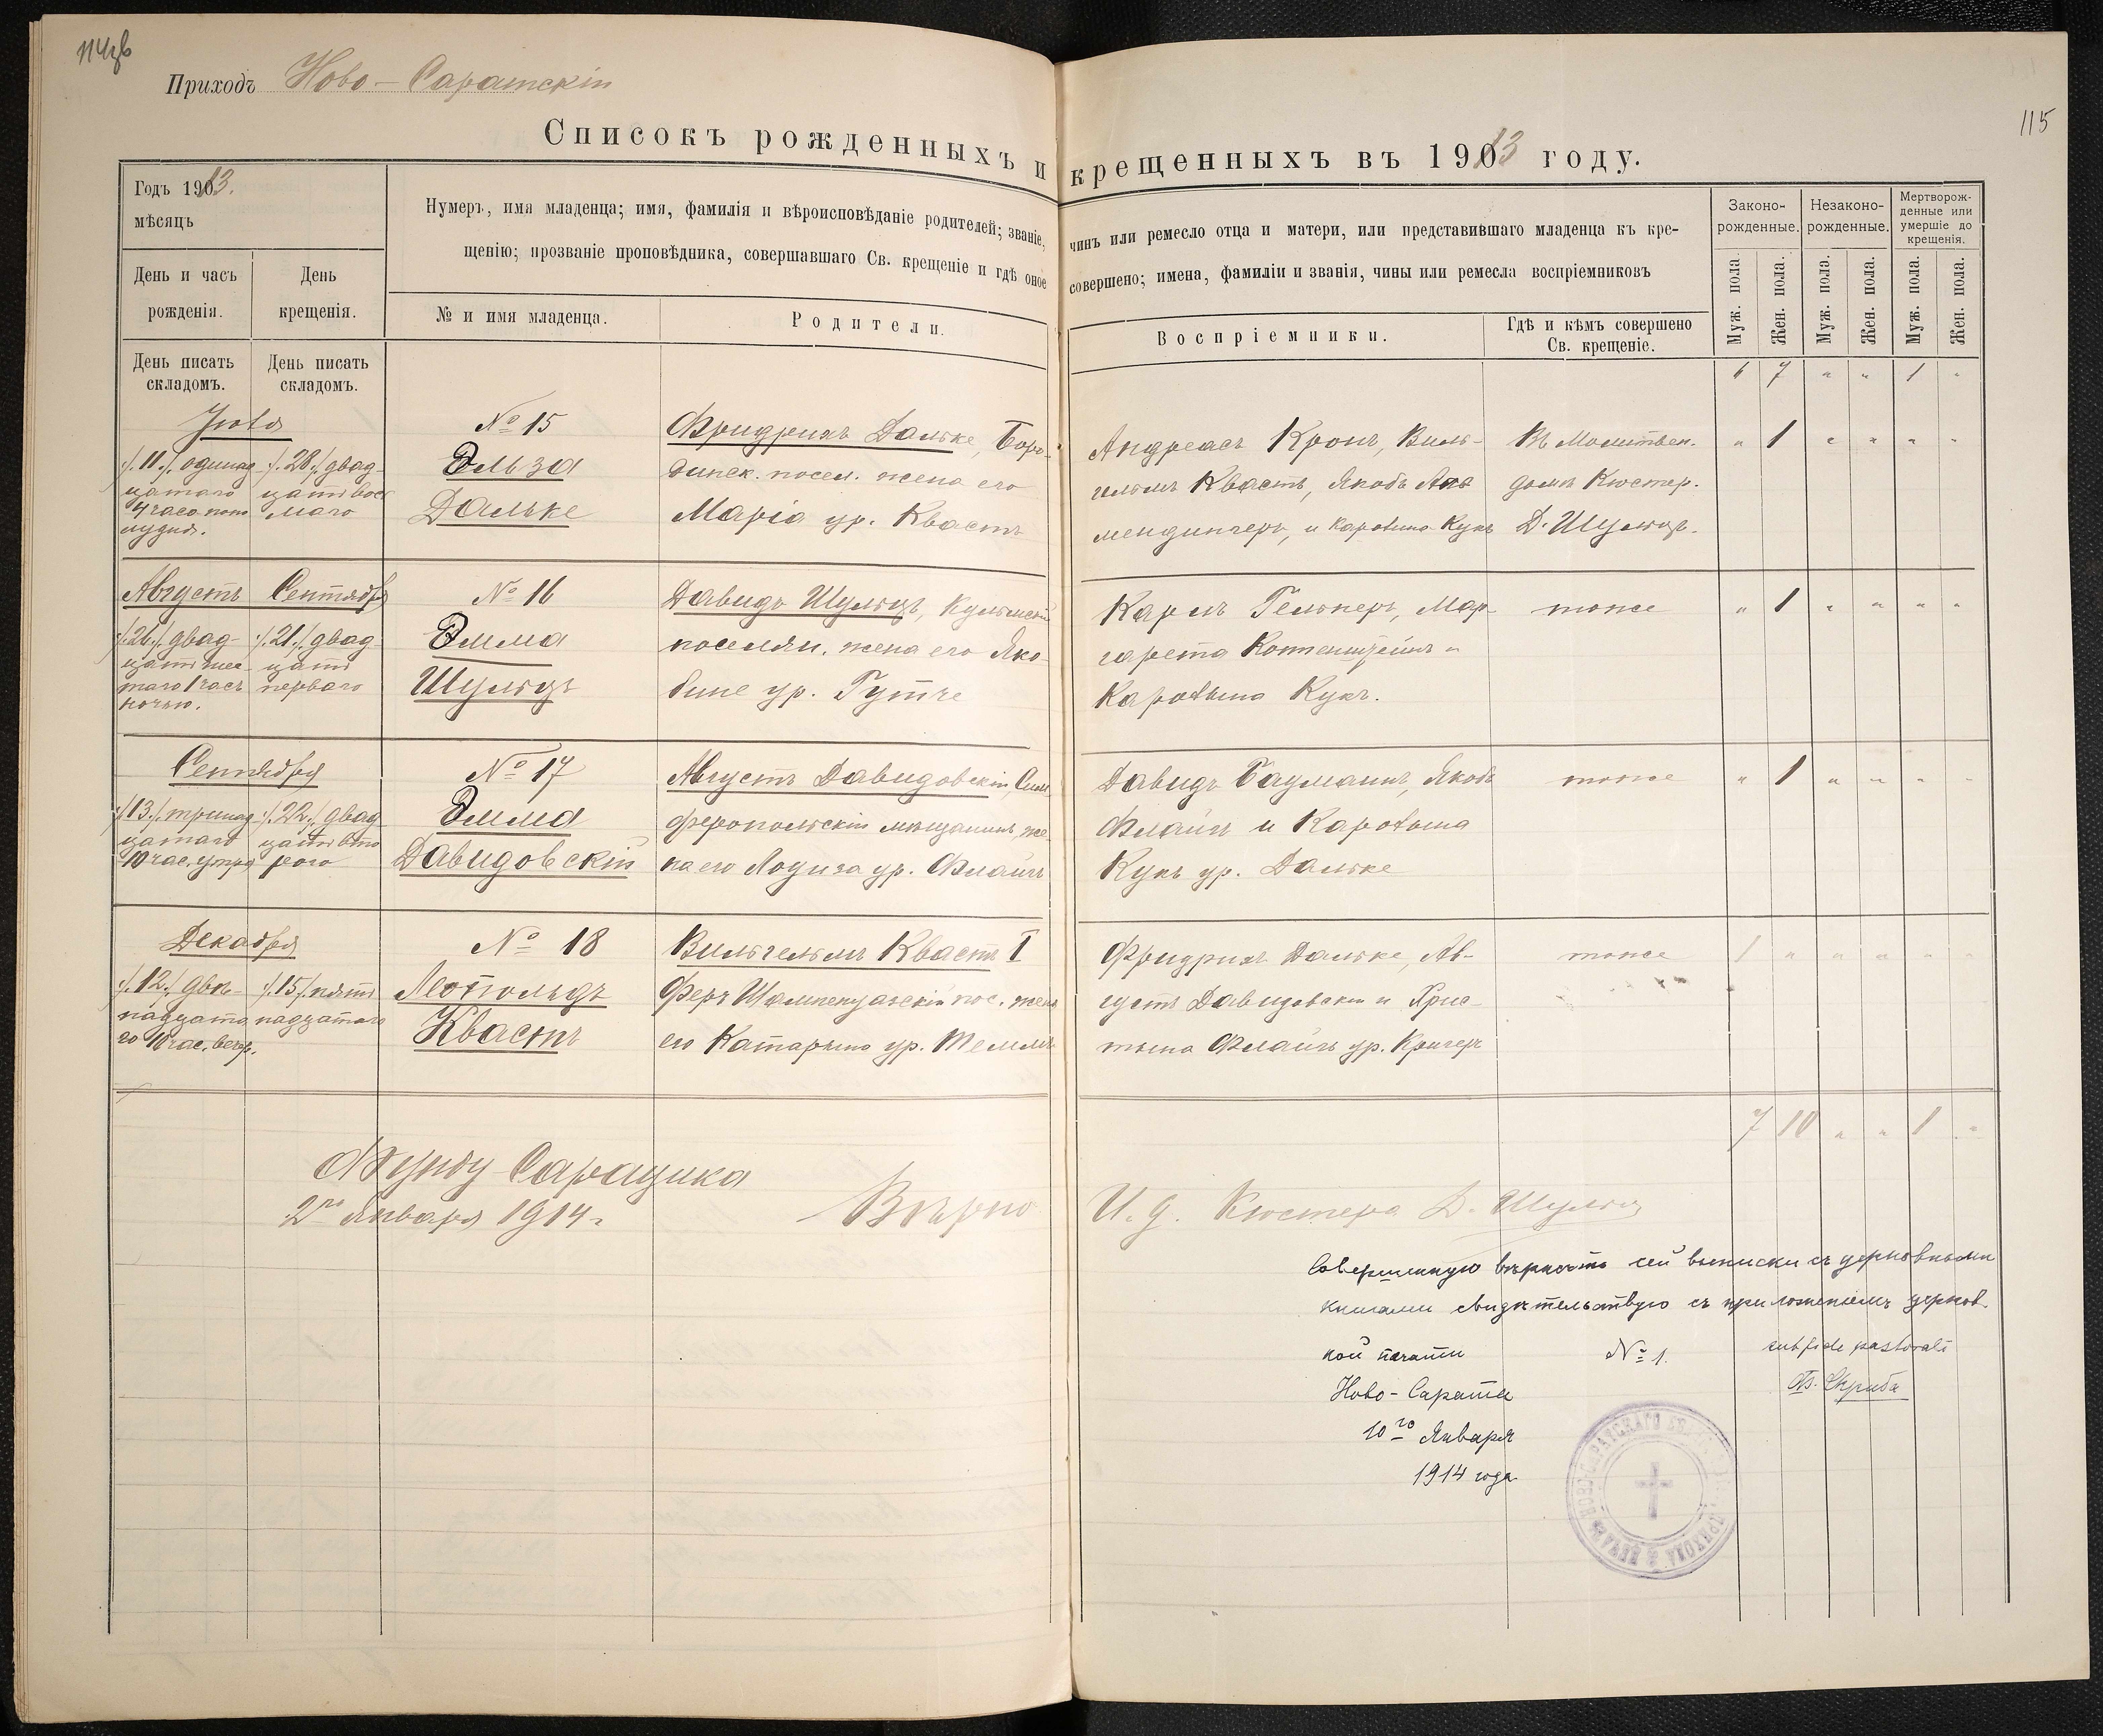 114об
Приходъ Ново-Саратскій
115
Списокъ рожденныхъ и крещенныхъ въ 1913 году.
Годъ 1913.
мѣсяцъ
День и часъ рожденія.
День крещенія.
Нумеръ, имя младенца; имя, фамилія и вѣроисповѣданіе родителей; званіе, чинъ или ремесло отца и матери, или представившаго младенца къ кре-
щенію; прозваніе проповѣдника, совершавшаго Св. крещеніе и гдѣ оное совершено; имена, фамиліи и званія, чины или ремесла воспріемниковъ
№ и имя младенца.
Родители.
Воспріемники.
Гдѣ и кѣмъ совершено Св. крещеніе.
Законо-рожденные.
Незаконо-рожденные.
Мертворож-денные или умершіе до крещенія.
Муж. пола.
Жен. пола.
Муж. пола.
Жен. пола.
Муж. пола.
Жен. пола.
День писать складомъ.
День писать складомъ.
6 7 " " 1 "
Іюля
/.11./. одинад-
цатаго
4 часа попо
лудня.
/.28./. двад-
цать вось
маго
№ 15
Эльза
Дальке
Фридрихъ Дальке, Боро-
динск. посел. жена его
Марія ур. Квастъ
Андреасъ Кронъ, Виль-
гельмъ Квастъ, Якобъ
и Каролина Кукъ
Въ Молитвен.
домѣ Кюстер.
Д. Шульцъ.
" 1 " " " "
Августъ
Сентября
/.26./. двад-
цать шес
таго 1 часъ
ночью.
/.21./. двад-
цать
перваго
№ 16
Эмма
Шульцъ
Давидъ Шульцъ, Кульмскій
поселян. жена его Яко-
бине ур. Гутче
Карлъ Гельнеръ, Мар-
гарета и
Каролина Кукъ.
тоже
" 1 " " " "
Сентября
/.13./. тринад-
цатаго
10 час. утра
/.22./. двад
цать вто
рого
№ 17
Эмма
Давидовскій
Августъ Давидовскій, Сим-
феропольскій мѣщанинъ, же-
на его Лодиза ур. Флайгъ
Давидъ Бауманнъ, Якобъ
Флайгъ и Каролина
Кукъ ур. Дальке
тоже
" 1 " " " "
Декабря
/.12./. двѣ-
надцата
го 10 час. вечер.
/.15./. пят
надцатаго
№ 18
Леопольдъ
Квастъ
Вильгельмъ Квастъ I
Феръ Шампенуазскій пос. жена
его Катарына ур. Темлеръ
Фридрихъ Дальке, Ав-
густъ Давидовскій и Хрис-
тына Флайгъ ур. Кригеръ
тоже
1 " " " " "
7 10 " " 1 "
2го Января 1914 г.
Вѣрно
И. д. Кюстера Д. Шульцъ
Совершенную вѣрность сей выписки съ церковными
книгами свидѣтельствую съ приложеніемъ церков-
ной печати
№ 1.
sub fide pastorali
Ново-Сарата
10го Января
1914 года